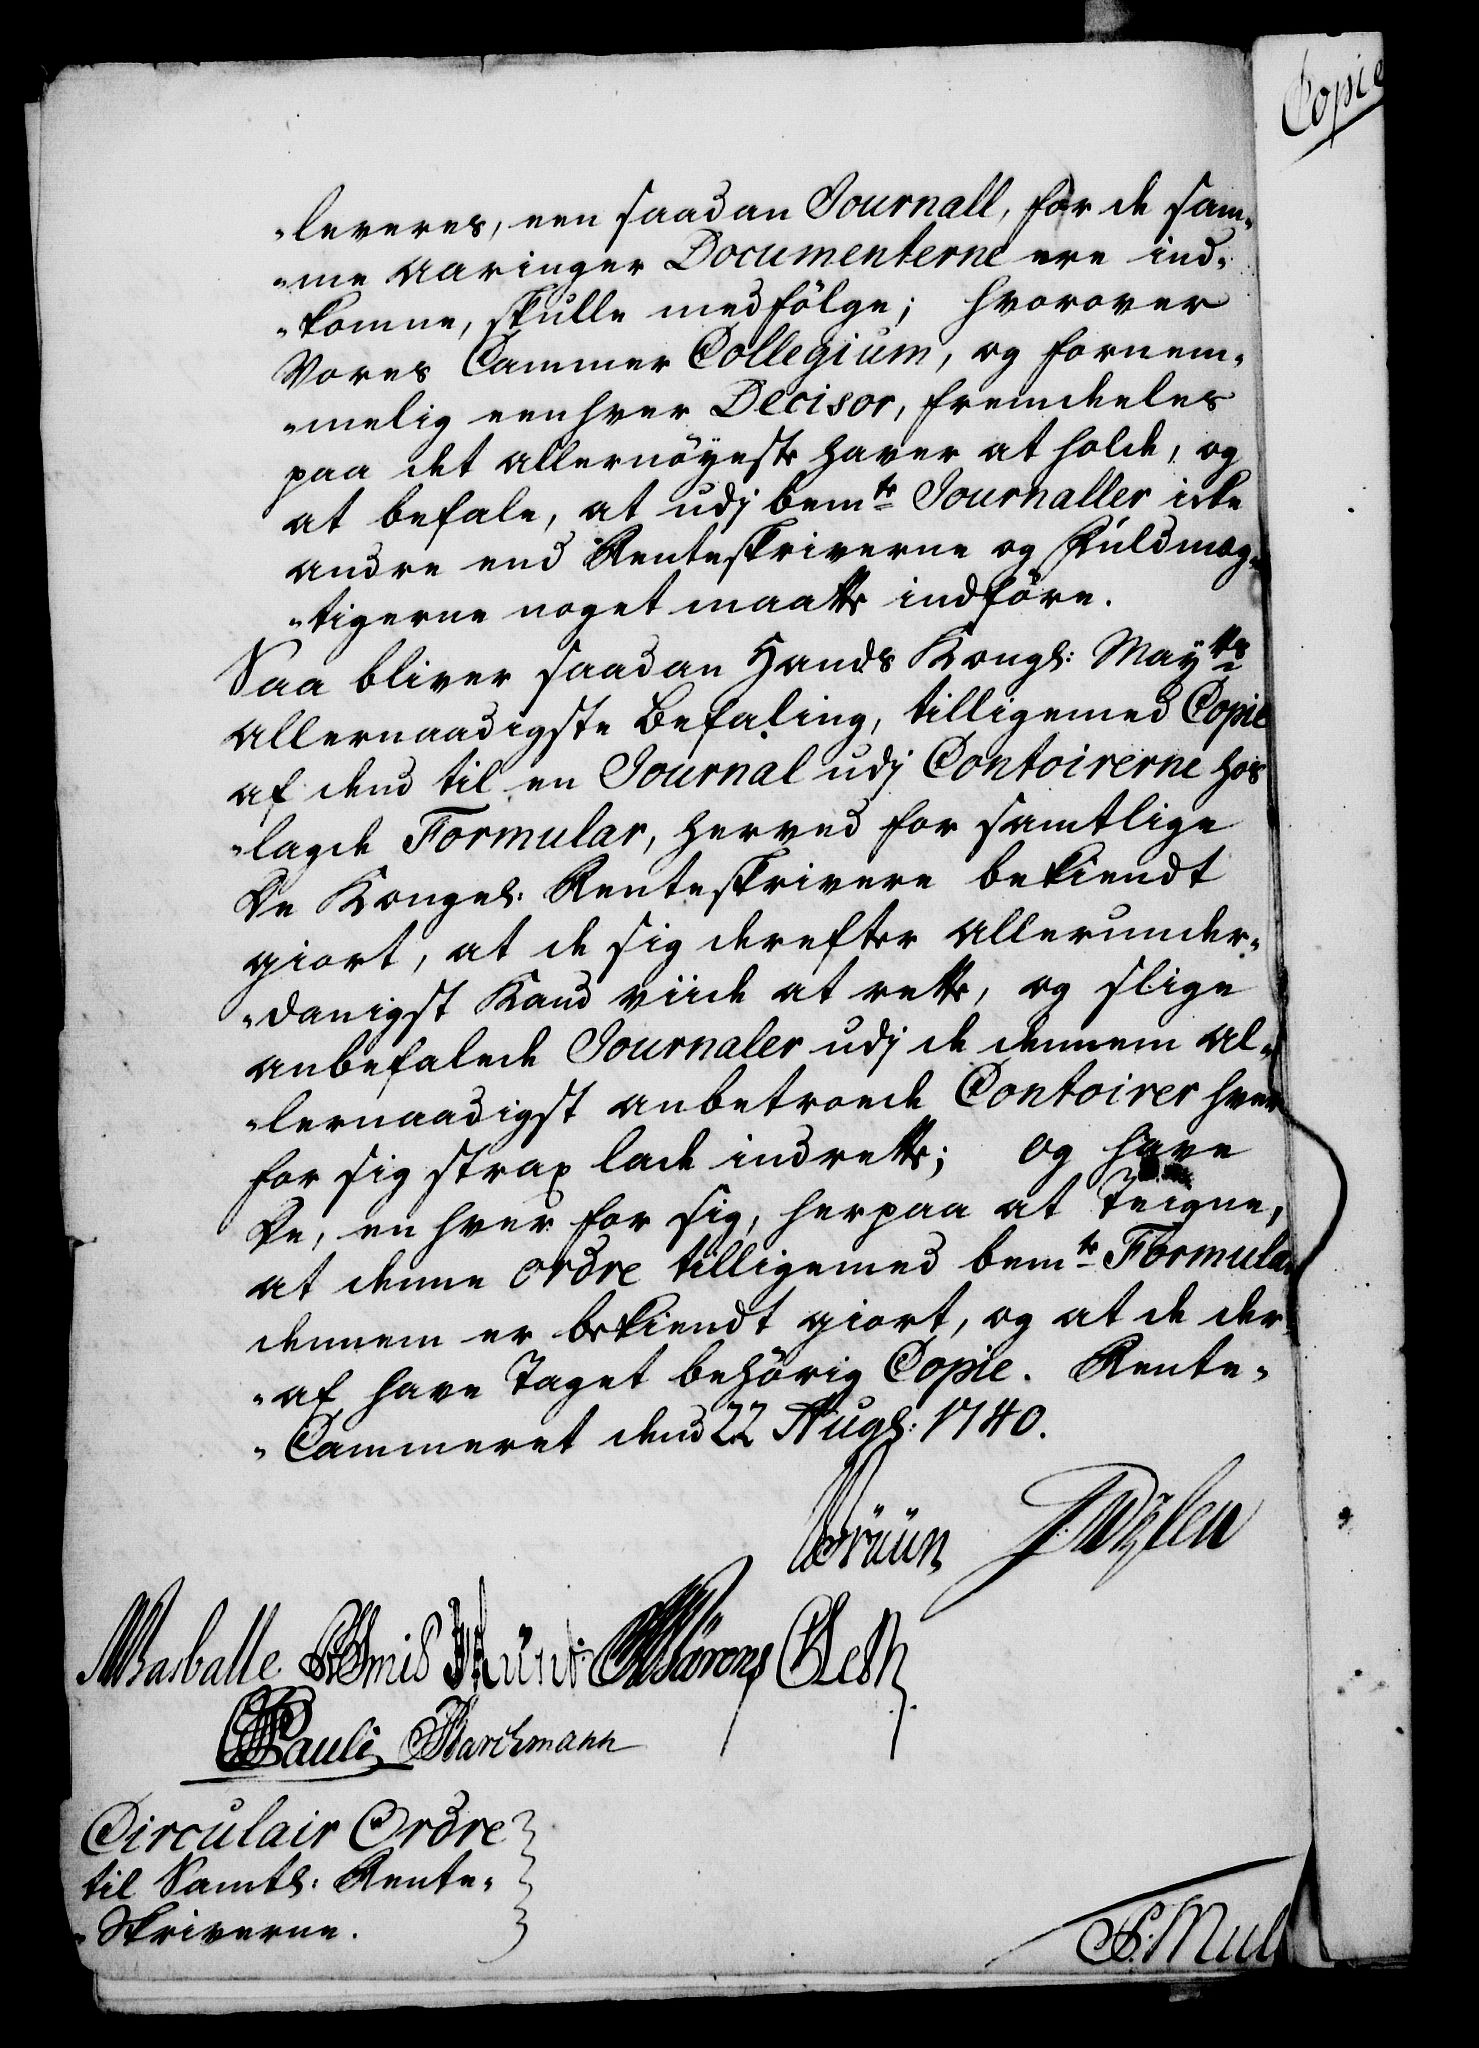 Copie
"leveres, een saadan Journall, for de sam-
"me aaringer Documenterne ere ind-
"komne, skulle medfölge; hvorover
Vores Cammer Collegium, og fornem-
"melig eenhver Decisor, fremdeeles
paa det allernöyeste haver at holde, og
at befale, at udj bemte Journaller icke
andre end Renteskriverne og Fuldmæg-
"tigerne noget maatte indföre.
Saa bliver saadan Hands Kongl: Mayts
allernaadigste Befaling, tilligemed Copie
af dend til en Journal udj Contoirerne hos
"lagde Formular, herved for samtlige
De Kongel: Renteskrivere bekiendt
giort, at de sig derefter allerunder-
"danigst Kand viide at rette, og slige
anbefalede Journaler udj de dennem al-
"lernaadigst anbetroede Contoirer hver
for sig strax lade indrette; og have
De, en hver for sig, herpaa at Teigne,
at denne ordre tilligemed bemte Formular
dennem er bekiendt giort, og at de der-
"af have Taget behörig Copie. Rente-
"Cammeret dend 22 Augl: 1740.
Brüün
Pauli Barchmann
Circulair Ordre
til Samtl: Rente-
"Skriverne.